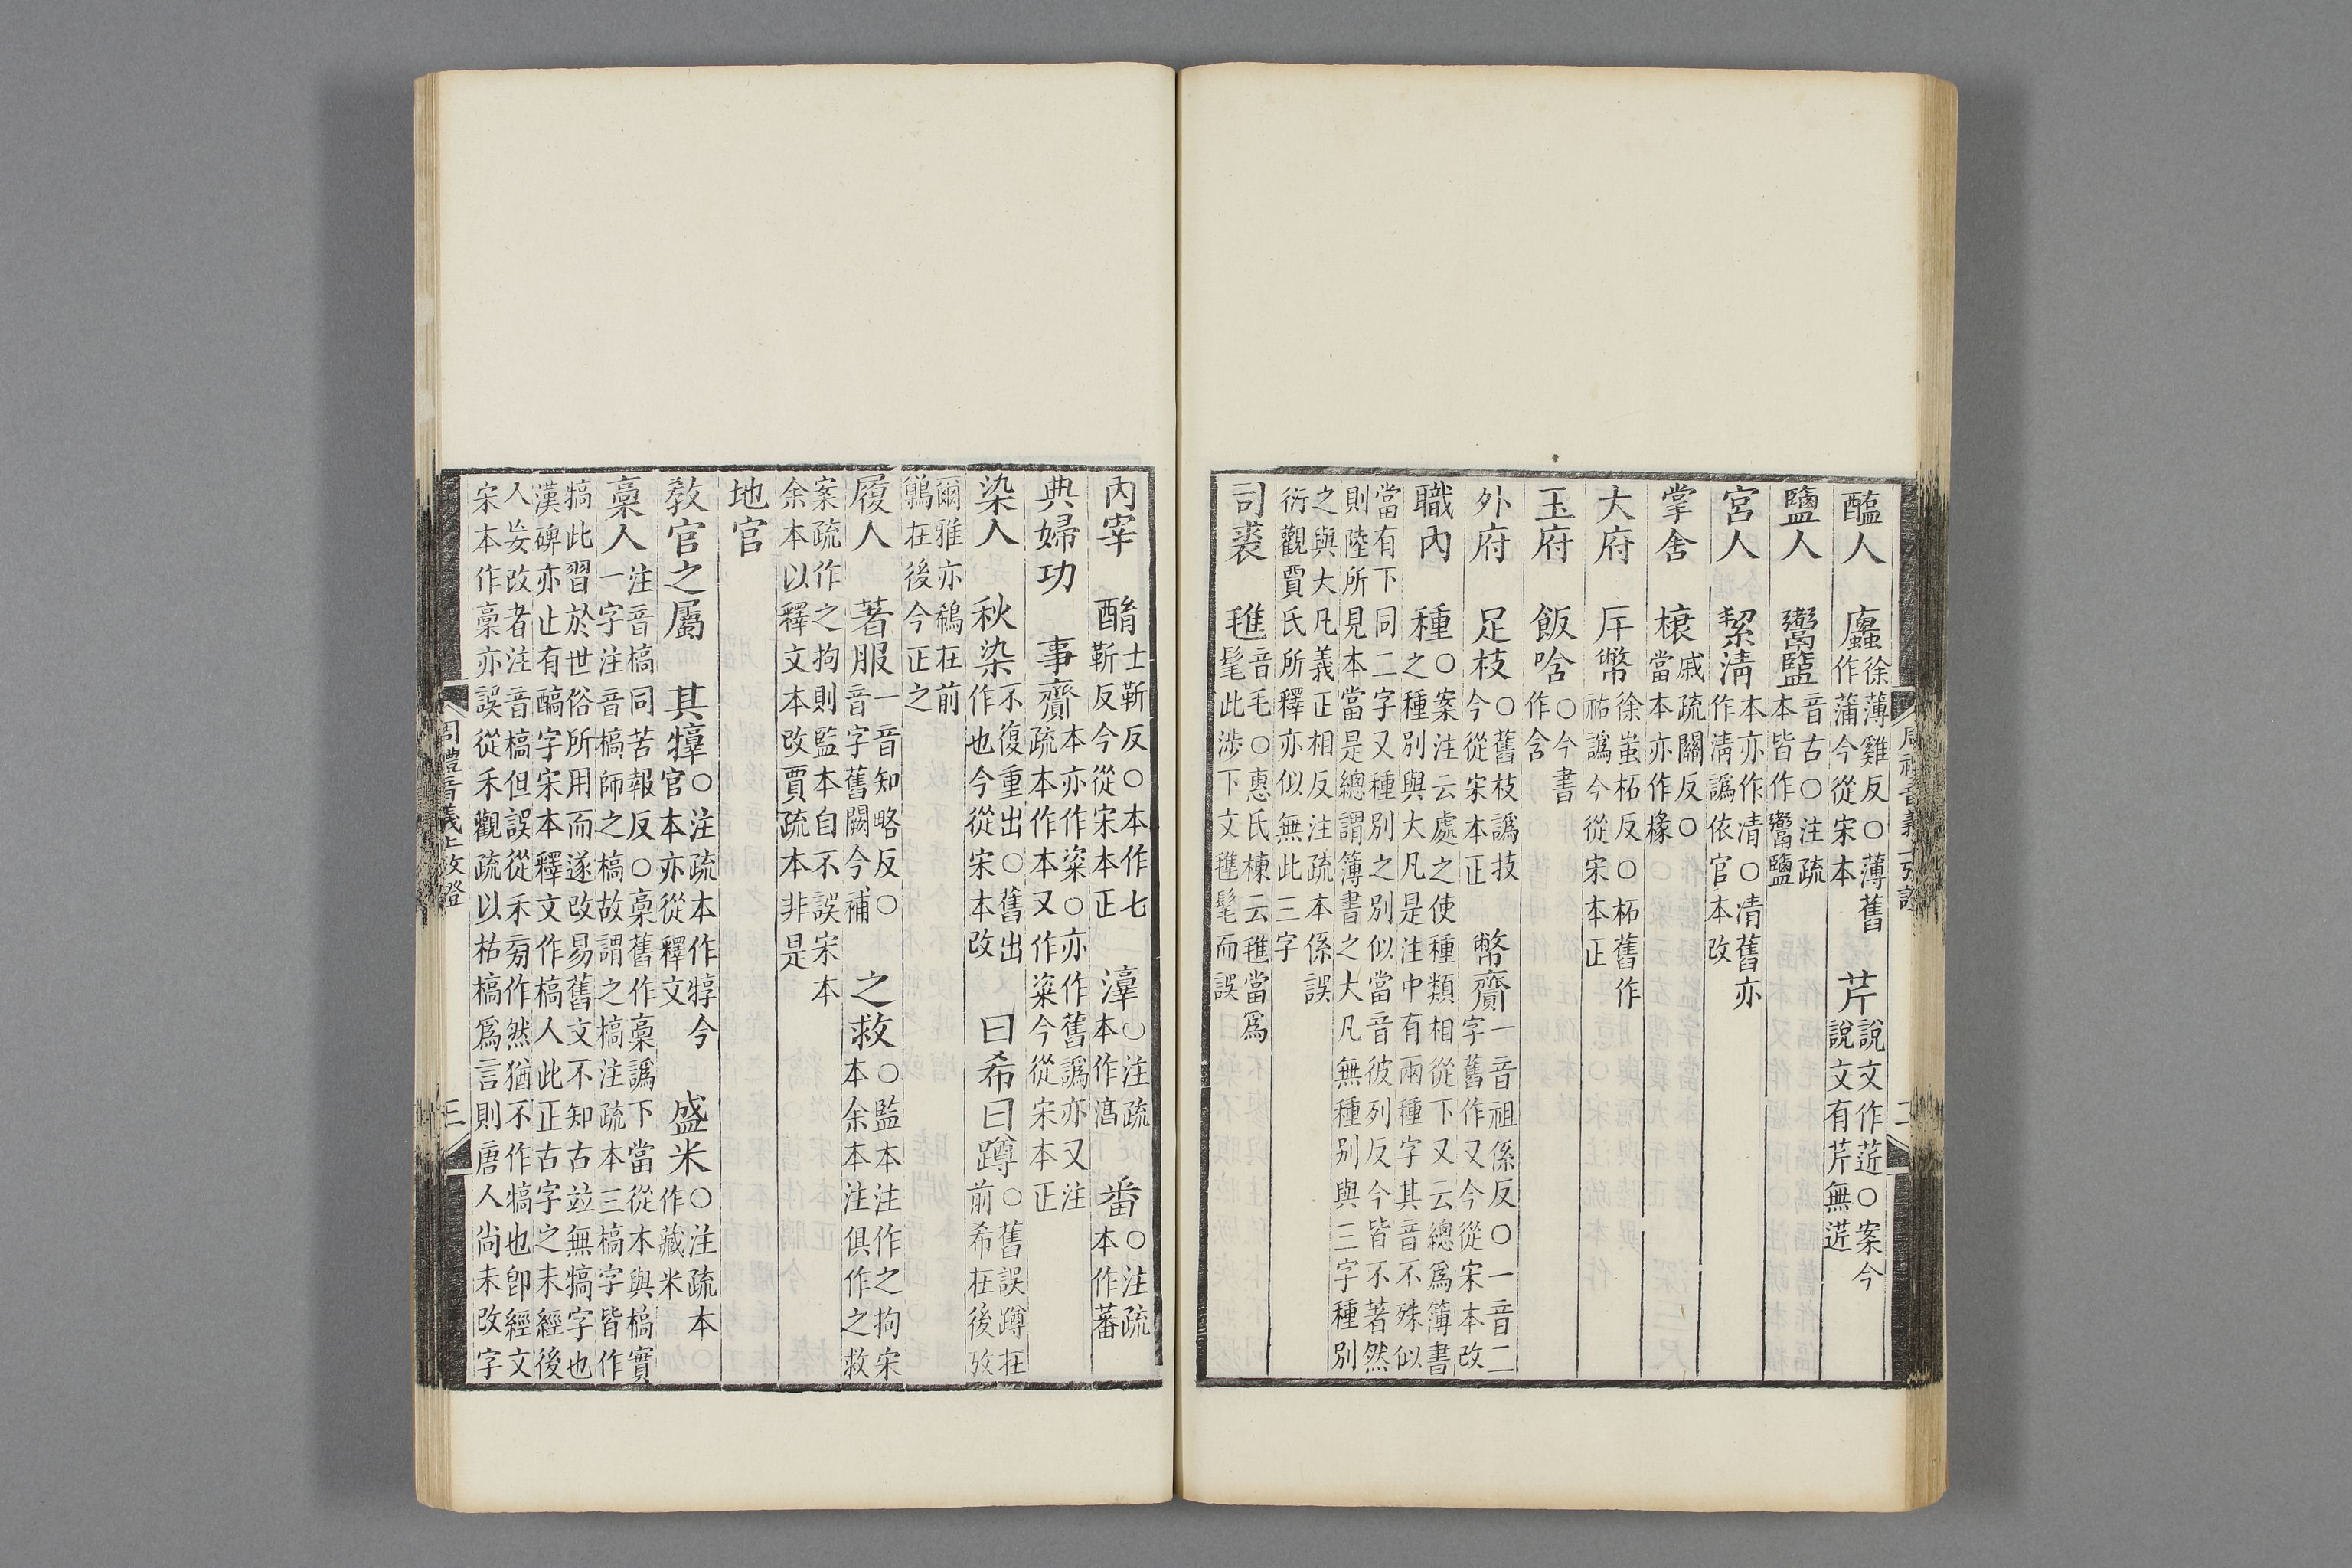 醢人　蠯徐薄雞反○薄舊作蒲今從宋本　芹說文作菦○案今說文有芹無菦
鹽人　鬻鹽音古○注疏本皆作鬻鹽
宮人　絜清本亦作凊○凊舊亦作清譌依官本改
掌舍　榱戚疏關反○當本亦作椽
大府　斥幣徐蚩柘反○柘舊作祏譌今從宋本正
玉府　飯唅○今書作含
外府　足枝○舊枝譌技今從宋本正　幣齎一音祖係反○一音二字舊作又今從宋本改
職內　種○案注云處之使種類相從下又云總爲簿書之種別與大凡是注中有兩種字其音不殊似
當有下同二字又種別之別似當音彼列反今皆不著然則陸所見本當是總謂簿書之大凡無種別與三字種別
之與大凡義正相反注疏本係誤衍觀賈氏所釋亦似無此三字
司裘　毸音毛○惠氏棟云毸當爲髦此涉下文毸髦而誤
周禮音義上攷證　二
內宰　酳士靳反○本作七靳反今從宋本正　滜○注疏本作滈　番○注疏本作蕃
典婦功　事齎本亦作粢○亦作舊譌亦又注疏本作本又作粢今從宋本正
染人　秋染不復重出○舊出作也今從宋本改　曰希曰蹲○舊誤蹲在前希在後攷
爾雅亦鵗在前鷷在後今正之
屨人　著服一音知略反○音字舊闕今補　之救○監本注作之拘宋本余本注俱作之救
案疏作之拘則監本自不誤宋本余本以釋文本改賈疏本非是
地官
敎官之屬　其犉○注疏本作犉今官本亦從釋文　盛米○注疏本作藏米
稾人注音槁同苦報反○稾舊作槀譌下當從本與槁實一字注音槁師之槁故謂之槁注疏本三槁字皆作
犒此習於世俗所用而遂改易舊文不知古竝無犒字也漢碑亦止有醕字宋本釋文作槁人此正古字之未經後
人妄改者注音槁但誤從禾㫄作然猶不作犒也卽經文宋本作稾亦誤從禾觀疏以枯槁爲言則唐人尚未改字
周禮音義上攷證　三